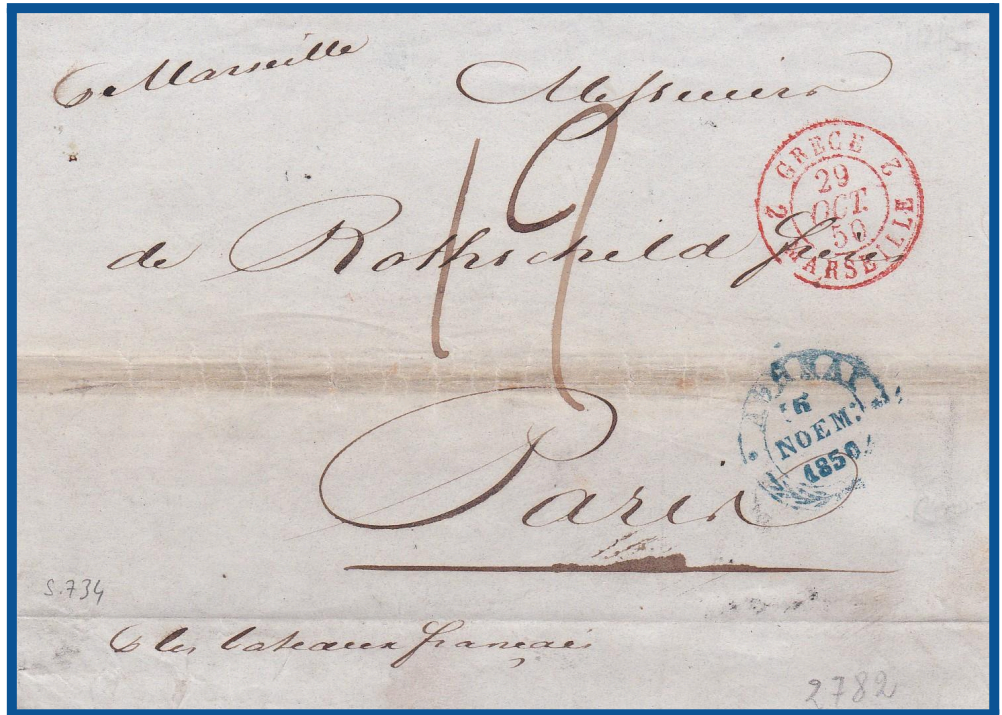 p Marseille
Messieurs
19
2 GRECE 2
29
OCT.
50
MARSEILLE
de Rothschild frères
ΑΘΗΝΑΙ
NOEM:
1850
Paris
S.734
p les bateaux français
2782